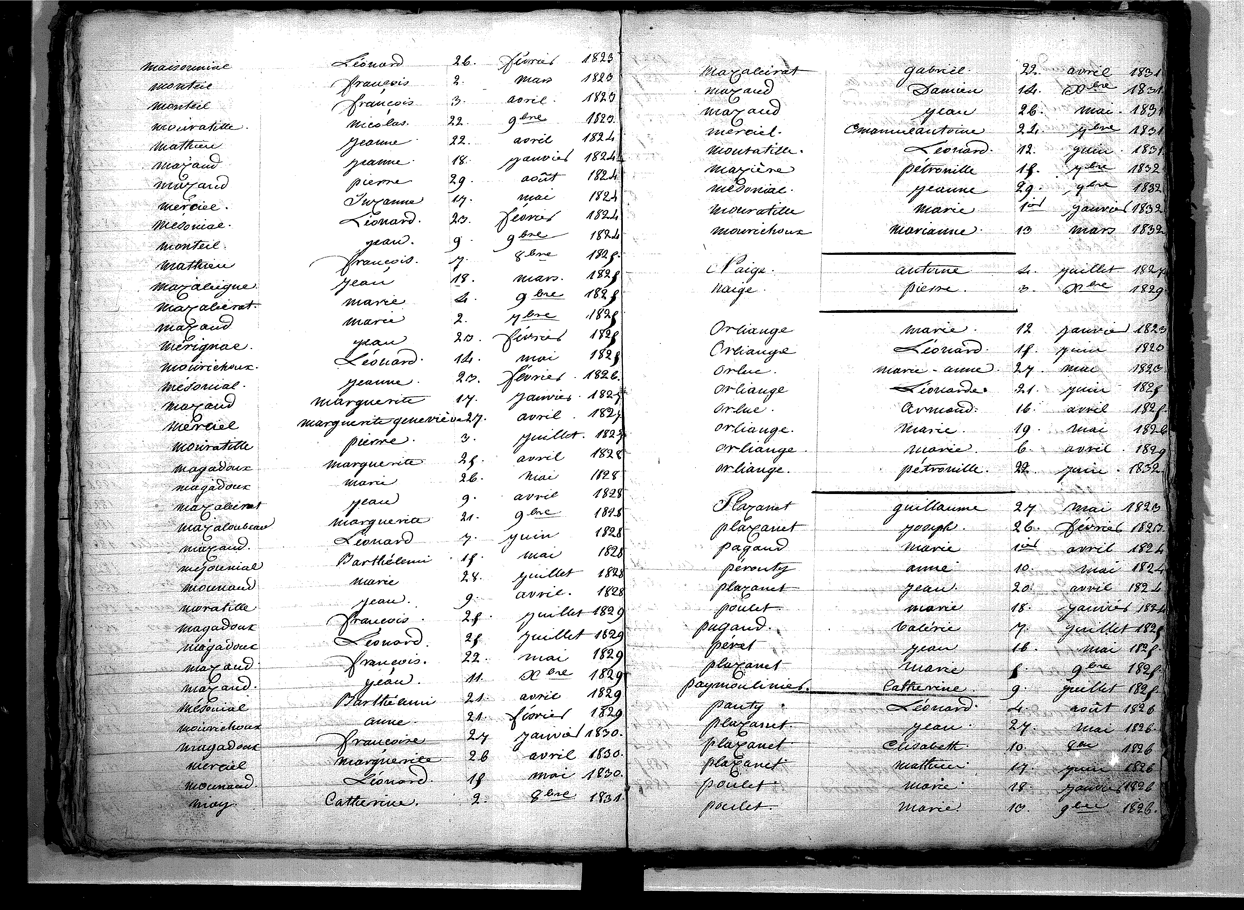 maisonnial Léonard 26. février 1823
monteil françois 2. mars 1823
monteil françois 3. avril 1823
mouratille. nicolas. 22. 9bre 1823.
mathieu jeanne 22. avril 1824
mazaud jeanne 18. janvier 1824
mazaud pierre 29. août 1824
merciel. Suzanne 17. mai 1824
mésonial. Léonard. 23. février 1824
monteil. jean. 9. 9bre 1824
mathieu françois. 7. 8bre 1825.
mazaleigue jean 18. mars. 1825
mazalérat. marie 4. 9bre 1825
mazaud marie 2. 7bre 1825
mérignac. jean 23. février 1825
mourichoux. Léonard. 14. mai 1825
mésonial. jeanne. 23. février 1826.
mazaud marguerite 17. janvier. 1827
merciel marguerite geneviève 27. avril. 1827
mouratille pierre. 3. juillet. 1827
magadoux marguerite 25. avril 1828
magadoux marie 26. mai 1828
mazalérat jean 9. avril 1828
mazaloubeau marguerite 21. 9bre 1828
mazaud. Léonard 7. juin 1828
mésounial Barthélemi 15. mai 1828
mounaud marie 28. juillet 1828
moratille jean. 9. avril. 1828
magadoux françois. 25. juillet 1829
magadoux Léonard. 25. juillet 1829
mazaud françois. 22. mai 1829
mazaud. jean. 11. Xbre 1829
mésonial Barthélemi 21. avril 1829
mourichoux anne. 21. février 1829
magadoux françoise 27 janvier 1830.
merciel marguerite 26 avril 1830.
mounaud Léonard 15 mai 1830.
may Catherine. 2. 8bre 1831.
mazaleirat gabriel. 22. avril 1831
mazaud Damien 14. Xbre 1831
mazaud jean 26. mai. 1831
merciel. Emanuel antoine 22. 7bre 1831
mouratille. Léonard. 12. juin. 1831
mazière pétronille 15. 7bre 1832
mésonial. jeanne 29. 7bre 1832
mouratille marie 1er janvier 1832
mourichoux marianne. 13 mars 1832
Naige. antoine 4. juillet 1824
naige. pierre 3. Xbre 1829.
Orliange marie. 12 janvier 1823
Orliange Léonard. 15. juin 1823
orluc. marie-anne. 27. mai 1823.
orliange Léonarde. 21. juin 1825
orluc. armand. 16. avril 1825.
orliange. marie. 19. mai 1826
orliange marie 6. avril 1829
orliange. pétronille. 22. juin. 1832
Plazanet guillaume 27 mai 1823
plazanet joseph. 26. février 1823.
pagaud marie 1er avril 1824
pérouty anne 10. mai 1824
plazanet jean. 20. avril 1824
poulet marie 18. janvier 1824
pugaud. Valérie 7. juillet 1825
péret jean 16. mai 1825
plazanet marie 5. 9bre 1825.
paymoulinier. Catherine. 9. juillet 1825.
pauty Léonard. 4. août 1826
plazanet. jean. 27. mai 1826.
plazanet Elisabeth. 10. 8bre 1826
plazanet mathieu 17. juin 1826
poulet marie 18. janvier 1826
poulet marie. 13. 9bre 1826.